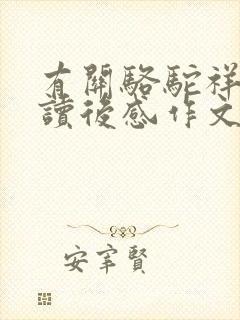 有關駱駝祥
讀後感作文
安宰賢